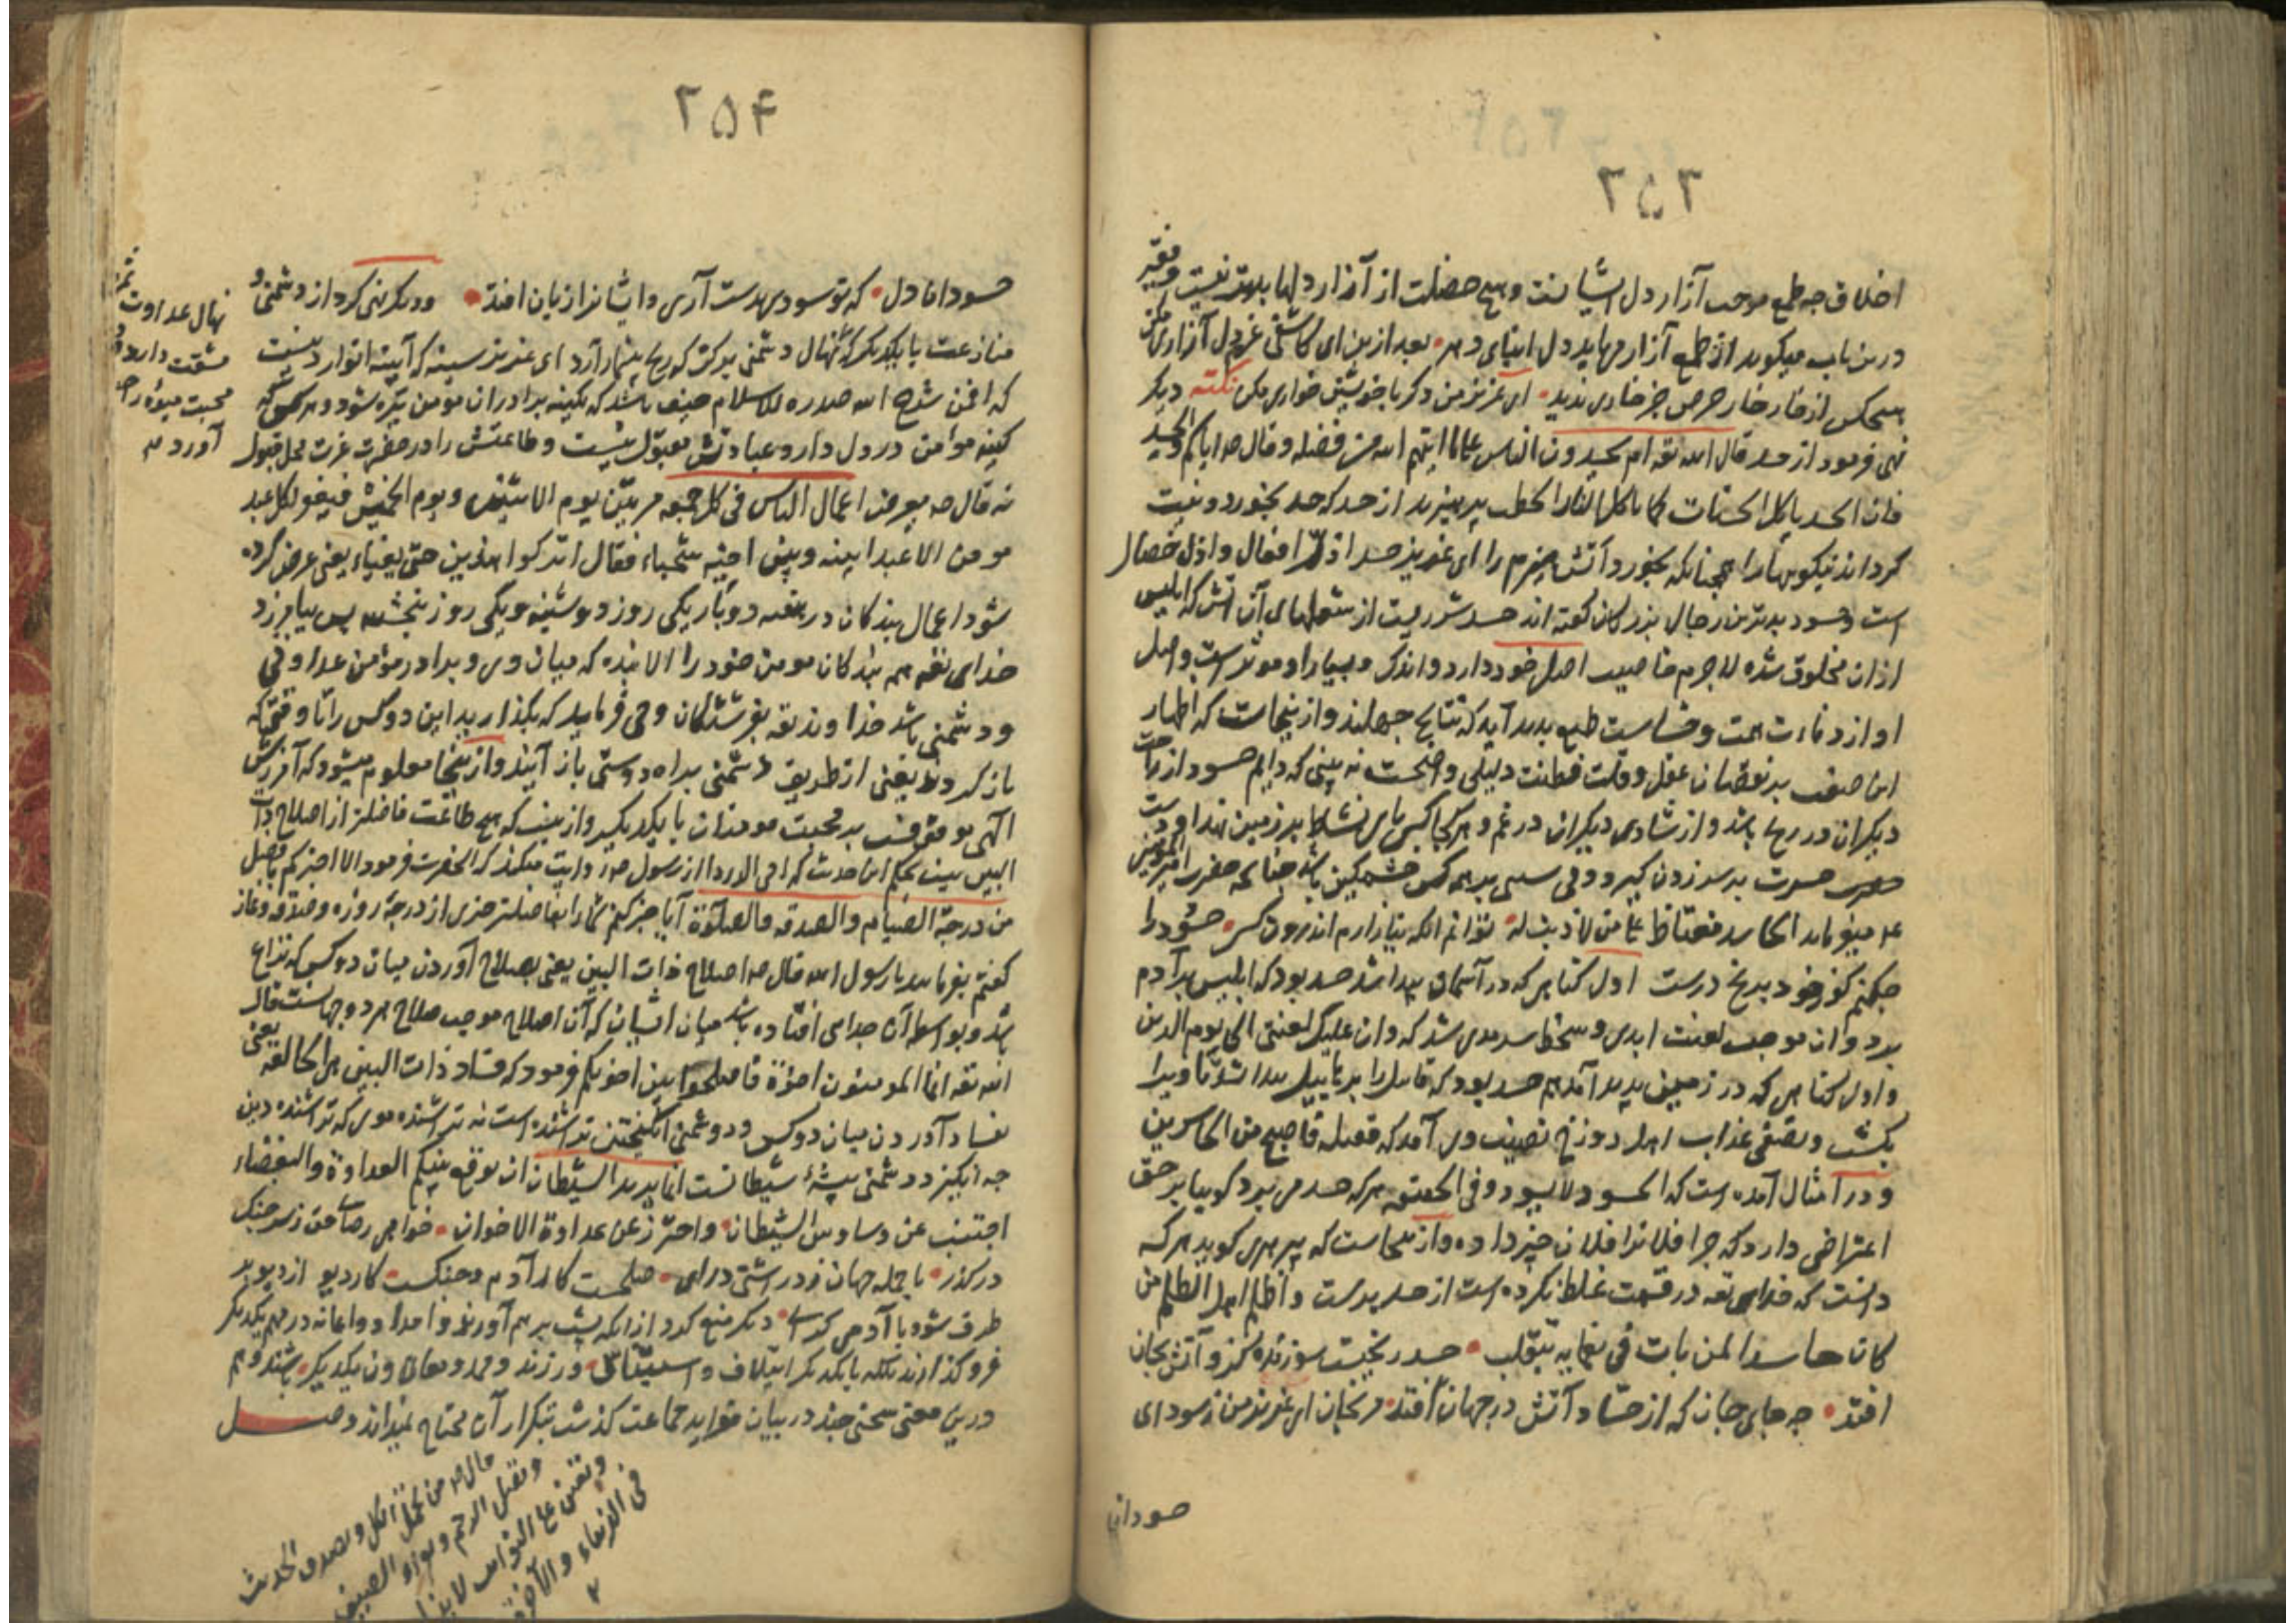 ۲۵۳
اخلاق چه طمع موجب آزار دل ایشانست و هیچ خصلت از آزار دلها بدتر نیست و فقیر
درین باب میکوید از طمع آزار میابد دل ابنای دهر بعد ازین ای کاشفی غم دل آزاری مکن
هیچکس از خار خار حرص جز خاری ندید ای عزیز من دکر با خویشتن خواری مکن نکته دیکر
نهی فرمود از حسد قال الله تعه ام یحسدون الناس علی ما اتیهم الله من فضله و قال صه ایاکم و الحسد
فان الحسد یاکل الحسنات کما تاکل النار الحطب بپرهیزید از حسد که حسد بخورد و نیست
کرداند نیکویها را همچنانکه بخورد آتش هیزم را ای عزیز حسد ارذل افعال و اذل خصال
است و حسود بدترین رجال بزرکان کفته اند حسد شرریست از شعلهای آن آتش که ابلیس
ازان مخلوق شده لاجرم خاصیت اصل خود دارد و اندک و بسیار او موثر است و اصل
او از دناءت همت و خساست طبع پدید آید که نتایج جهلند و ازینجاست که اظهار
این صفت بر نقصان عقل و قلت فطنت دلیلی واضحست نه بینی که دایم حسود از راحت
دیکران در رنج باشد و از شادی دیکران در غم و هر کجا کسی پای نشاط بر زمین نهد او دست
حسرت بر سر زدن کیرد و بی سببی بر همه کس خشمکین باشد چنانچه حضرت امیر المؤمنین
عه میفرماید الحاسد مغتاظ علی من لا ذنب له توانم آنکه نیازارم اندرون کسی حسود را
چکنم کو ز خود برنج درست اول کناهی که در آسمان پیدا شد حسد بود که ابلیس بر آدم
برد و آن موجب لعنت ابدی و سخط سرمدی شد که و ان علیک لعنتی الی یوم الدین
و اول کناهی که در زمین پدید آمد هم حسد بود که قابیل را بر هابیل پیدا شد تا ویرا
بکشت و مستحق عذاب اهل دوزخ نصیب وی آمد که فقتله فاصبح من الخاسرین
و در امثال آمده است که الحسود لا یسود و فی الحقیقه هر که حسد می برد کوییا بر حق
اعتراضی دارد که چرا فلانرا فلان چیز داده و ازینجاست که پیر هری کوید هر که
دانست که خدای تعه در قسمت غلط نکرده است از حسد برست و اظلم اهل الظلم من
کان حاسدا لمن بات فی نعمایه یتقلب حسد ریخت سوزنده کز و آتش بجان
افتد چه جای جان که از حساد آتش در جهان افتد مرنجان ای عزیز من ز سودای
حسودان
۲۵۴
حسودانا دل که تو سودی بدست آری و ایشانرا زیان افتد و دیکر نهی کرد از دشمنی و
منازعت با یکدیکر که نهال دشمنی بر کن که رنج بیشمار آرد ای عزیز سینه که آیینه انوار دینست
که افمن شرح الله صدره للاسلام حیف باشد که بکینه برادران مومن تیره شود و هر کس که
کینه مؤمن در دل دارد عبادتش مقبول نیست و طاعتش را در حضرت عزت محل قبول
نه قال صه یعرض اعمال الناس فی کل جمعه مرتین یوم الاثنین و یوم الخمیس فیغفر لکل عبد
مومن الا عبدا بینه و بین اخیه شحناء فقال اترکوا هذین حتی یفیئا یعنی عرض کرده
شود اعمال بندکان در هفته دو بار یکی روز دوشنبه و یکی روز پنجشنبه پس بیامرزد
خدای تعه همه بندکان مومن خود را الا بنده که میان وی و برادر مؤمن عداوتی
و دشمنی باشد خداوند تعه بفرشتکان وحی فرماید که بکذارید این دو کس را تا وقتی که
باز کردند یعنی از طریق دشمنی براه دوستی باز آیند و ازینجا معلوم میشود که آمرزش
الهی موقوفست بر محبت مومنان با یکدیکر و ازینست که هیچ طاعت فاضلتر از اصلاح ذات
البین نیست بحکم این حدیث که ابی الدردا از رسول صه روایت میکند که آنحضرت فرمود الا اخبرکم بافضل
من درجة الصیام و الصدقه و الصلوة آیا خبر کنم شما را بفاضلتر چیزی از درجه روزه و صدقه و نماز
کفتم بفرمایید یا رسول الله قال صه اصلاح ذات البین یعنی بصلاح آوردن میان دو کس که نزاع
باشد و بواسطه آن جدایی افتاده باشد میان ایشان که آن اصلاح موجب صلاح هر دو جهانست قال
الله تعه انما المومنون اخوة فاصلحوا بین اخویکم فرمود که فساد ذات البین هی الحالقه یعنی
بفساد آوردن میان دو کس و دشمنی انکیختن تراشنده است نه تراشنده موی که تراشنده دین
چه انکیز دشمنی پیشه شیطانست انما یرید الشیطان ان یوقع بینکم العداوة و البغضاء
اجتنب عن وساوس الشیطان و احترز عن عداوة الاخوان خواهی رضای حق ز سر جنک
در کذر با جمله جهان ز در اشتی درای صلحست کار آدم و جنکست کار دیو از دیو بر
طرف شو با آدمی کرای دیکر منع کرد از آنکه پشت بر هم آورند و امداد و اعانه در مهم یکدیکر
فرو کذارند بلکه با یکدیکر ایتلاف و استیناس ورزند و ممد و معاون یکدیکر باشند و هم
درین معنی سخنی چند در بیان فواید جماعت کذشت بتکرار آن محتاج نمیداند وصل
نهال عداوت
مشقت دارد
محبت میوه راحت
آورد
قال صه من یحمل الکل و یصدق الحدیث
و یعین علی النوائب
۲